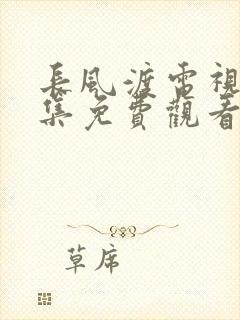 長風渡電視
集免費觀看
草席